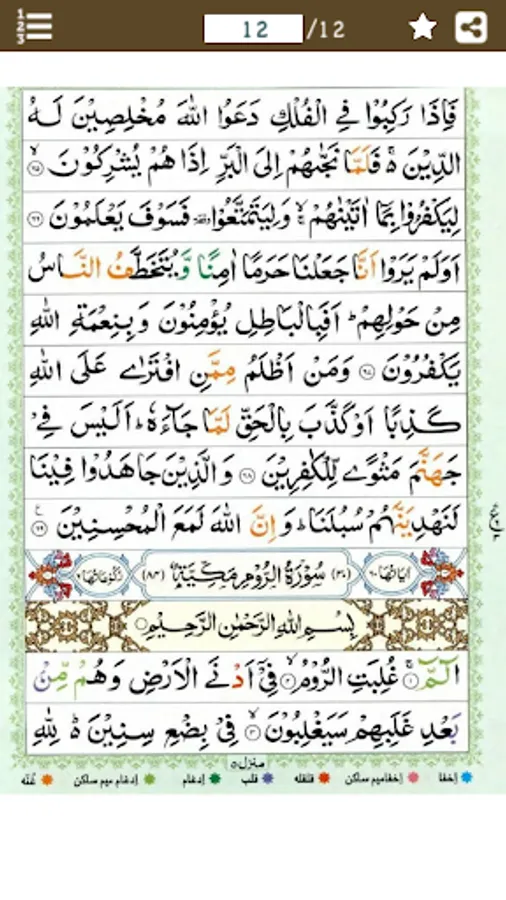 123
12 /12
فَاِذَا رَكِبُوۡا فِى الۡفُلۡكِ دَعَوُا اللّٰهَ مُخۡلِصِيۡنَ لَـهُ
الدِّيۡنَ ۚ فَلَمَّا نَجّٰٮهُمۡ اِلَى الۡبَرِّ اِذَا هُمۡ يُشۡرِكُوۡنَ ۙ‏﴿۶۵﴾
لِيَكۡفُرُوۡا بِمَاۤ اٰتَيۡنٰهُمۡ ۙۚ وَلِيَتَمَتَّعُوۡا فَسَوۡفَ يَعۡلَمُوۡنَ ﴿۶۶﴾
اَوَلَمۡ يَرَوۡا اَنَّا جَعَلۡنَا حَرَمًا اٰمِنًا وَّيُتَخَطَّفُ النَّاسُ
مِنۡ حَوۡلِهِمۡ ؕ اَفَبِالۡبَاطِلِ يُؤۡمِنُوۡنَ وَبِنِعۡمَةِ اللّٰهِ
يَكۡفُرُوۡنَ ﴿۶۷﴾ وَمَنۡ اَظۡلَمُ مِمَّنِ افۡتَرٰى عَلَى اللّٰهِ
كَذِبًا اَوۡ كَذَّبَ بِالۡحَـقِّ لَـمَّا جَآءَهٗ ؕ اَلَيۡسَ فِىۡ
جَهَنَّمَ مَثۡوًى لِّلۡكٰفِرِيۡنَ ﴿۶۸﴾ وَالَّذِيۡنَ جَاهَدُوۡا فِيۡنَا
لَنَهۡدِيَنَّهُمۡ سُبُلَنَا ؕ وَاِنَّ اللّٰهَ لَمَعَ الۡمُحۡسِنِيۡنَ ﴿۶۹﴾
اٰيَاتُهَا ۶۰ (۳۰) سُوۡرَةُ الرُّوۡمِ مَكِّيَّةٌ (۸۴) رُكُوۡعَاتُهَا ۶
بِسۡمِ اللّٰهِ الرَّحۡمٰنِ الرَّحِيۡمِ
الٓمّٓ ۚ‏﴿۱﴾ غُلِبَتِ الرُّوۡمُ ۙ‏﴿۲﴾ فِىۡۤ اَدۡنَى الۡاَرۡضِ وَهُمۡ مِّنۡۢ
بَعۡدِ غَلَبِهِمۡ سَيَغۡلِبُوۡنَ ۙ‏﴿۳﴾ فِىۡ بِضۡعِ سِنِيۡنَ ؕ لِلّٰهِ
منزل ۵
إخفا إخفامیم ساکن قلقله قلب إدغام إدغام میم ساکن غُنّه